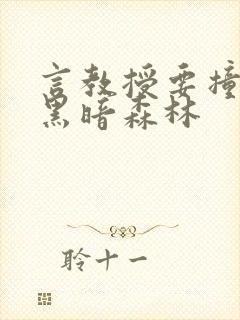 言教授要撞
黑暗森林
聆十一